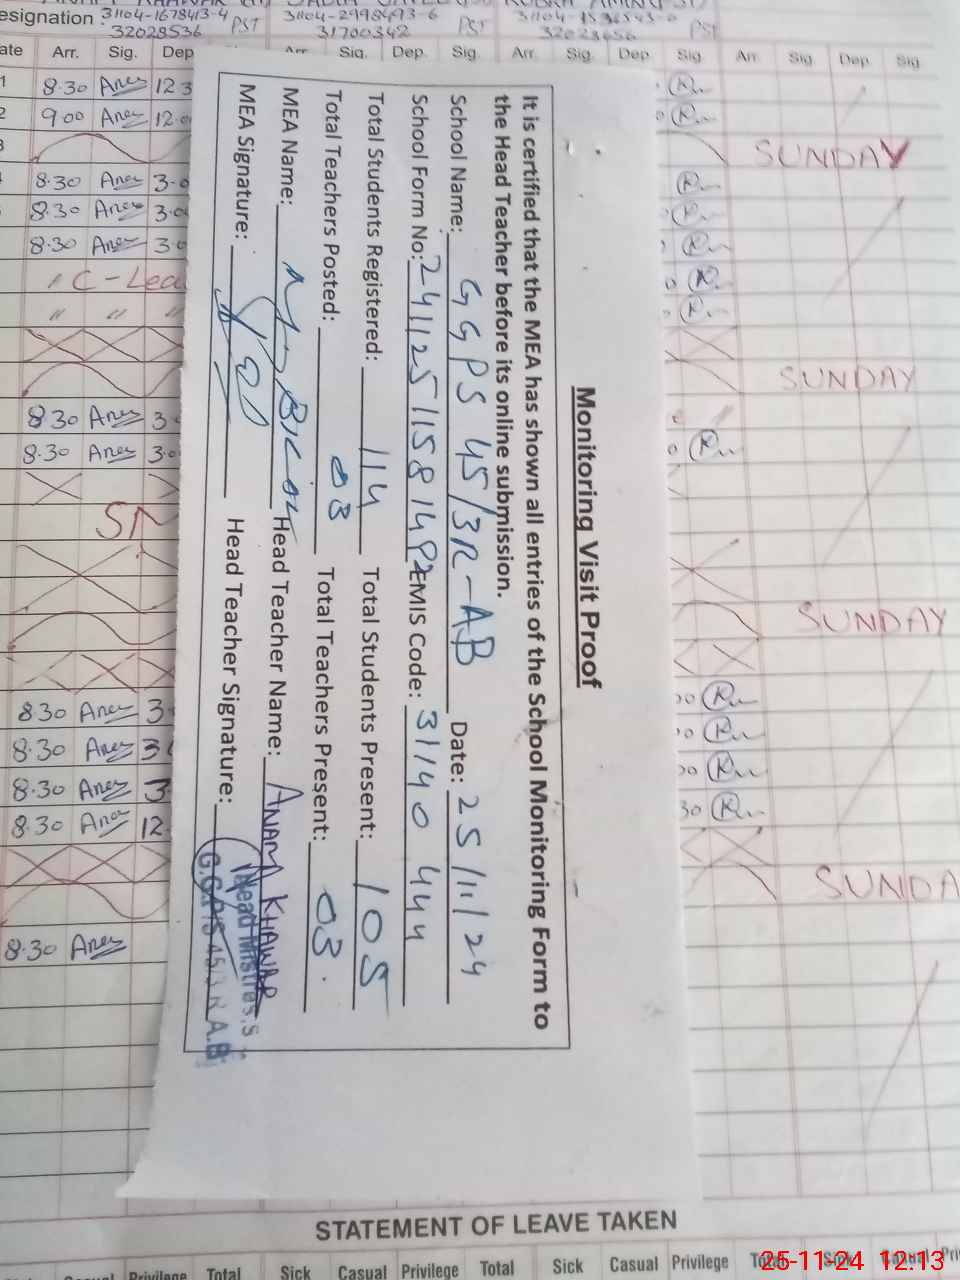 esignation 31104-1678413-4 PST 31104-2998493-6 PST
32028536 31700342
ate Arr. Sig. Dep Arr. Sig. Dep. Sig. Arr. Sig. Dep Sig. Arr. Sig. Dep. Sig.
1 8.30 Anam 12.3
2 9.00 Anam 12.0
SUNDAY
8.30 Anam 3.0
8.30 Anam 3.0
8.30 Anam 3.0
" C-Lea
" " "
SUNDAY
8.30 Anam 3.
8.30 Anam 3.0
SUNDAY
8.30 Anam 3.
8.30 Anam 3
8.30 Anam 3.
8.30 Anam 12.
SUNDA
8.30 Anam
Monitoring Visit Proof
It is certified that the MEA has shown all entries of the School Monitoring Form to
the Head Teacher before its online submission.
School Name: GGPS 45/3R-AB Date: 25/11/24
School Form No: EMIS Code: 31140 444
Total Students Registered: 114 Total Students Present: 105
Total Teachers Posted: 03 Total Teachers Present: 03.
MEA Name: M. Bilal Head Teacher Name: ANAM KHAWAR
MEA Signature: Head Teacher Signature:
Head Mistress
STATEMENT OF LEAVE TAKEN
Casual Privilege Total Sick Casual Privilege Total Sick Casual Privilege Total Sick Casual Pri
25-11-24 12:13